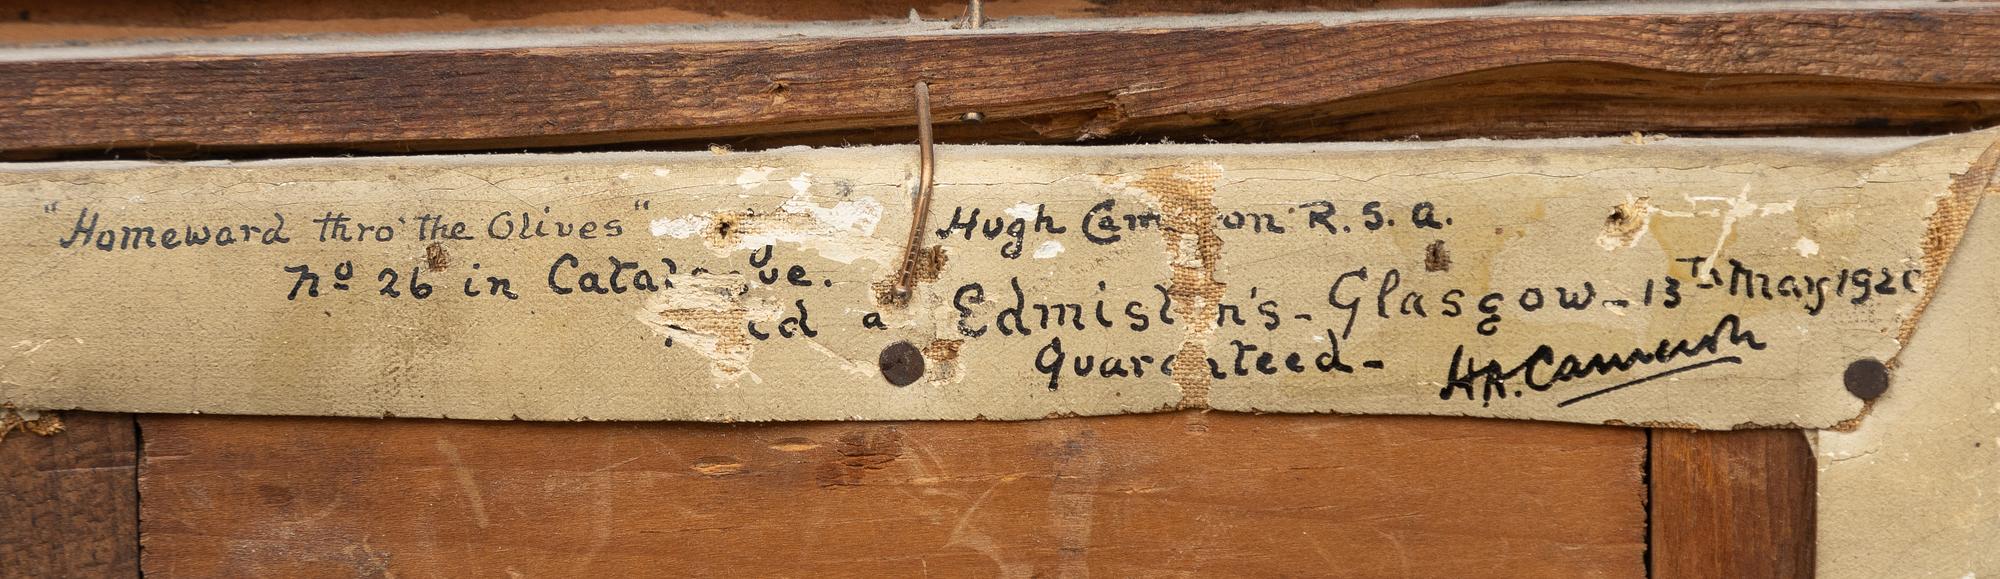 "Homeward thro' the Olives" Hugh Cameron R.S.A.
No 26 in Catalogue.
Edmiston's - Glasgow - 13th May
Guaranteed - H.A. Cameron